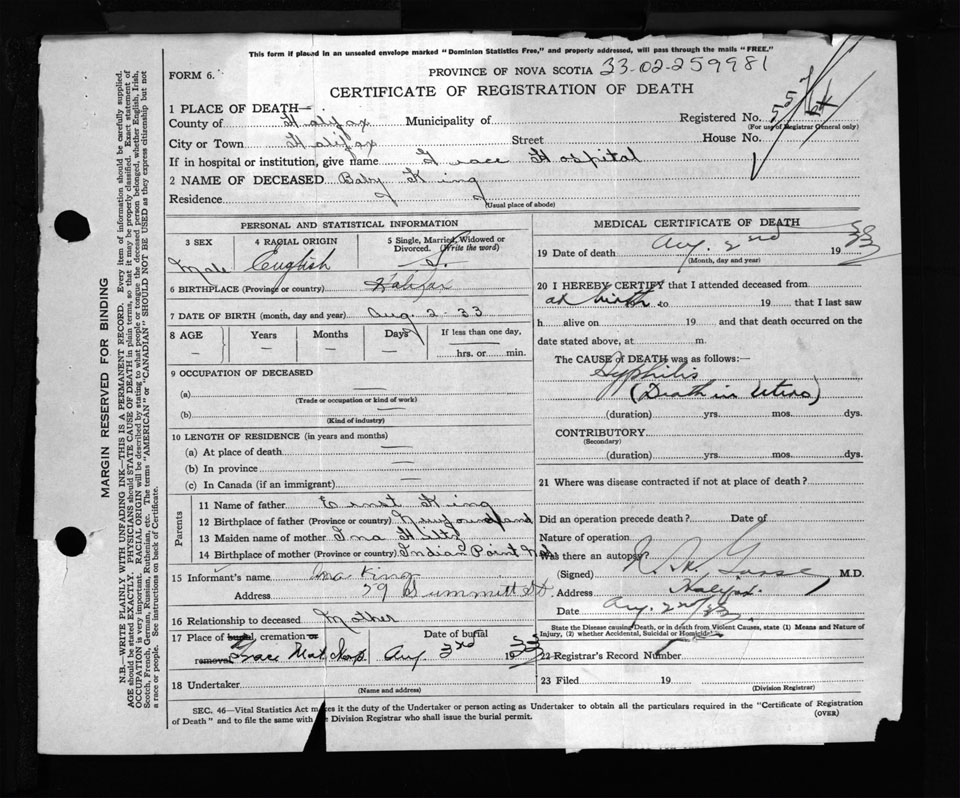 This form if placed in an unsealed envelope marked "Dominion Statistics Free," and properly addressed, will pass through the mails "FREE."
FORM 6.
PROVINCE OF NOVA SCOTIA 33-02-259981
CERTIFICATE OF REGISTRATION OF DEATH
1 PLACE OF DEATH—
County of Halifax Municipality of
Registered No.
(For use of Registrar General only)
City or Town Halifax Street House No.
If in hospital or institution, give name Grace Hospital
2 NAME OF DECEASED Baby King
Residence
(Usual place of abode)
PERSONAL AND STATISTICAL INFORMATION
3 SEX
Male
4 RACIAL ORIGIN
English
5 Single, Married, Widowed or Divorced. (Write the word)
S.
6 BIRTHPLACE (Province or country) Halifax
7 DATE OF BIRTH (month, day and year) Aug. 2-33
8 AGE Years Months Days If less than one day,
— — — — hrs. or min.
9 OCCUPATION OF DECEASED
(a) —
(Trade or occupation or kind of work)
(b) —
(Kind of industry)
10 LENGTH OF RESIDENCE (in years and months)
(a) At place of death —
(b) In province —
(c) In Canada (if an immigrant) —
Parents
11 Name of father Ernst King
12 Birthplace of father (Province or country) Newfoundland
13 Maiden name of mother Ina Hiltz
14 Birthplace of mother (Province or country) Indian Point
15 Informant's name Ina King
Address 59 Summitt St.
16 Relationship to deceased Mother
17 Place of burial, cremation or removal Grace Mat. Hosp.
Date of burial
Aug. 3rd 1933
18 Undertaker
(Name and address)
MEDICAL CERTIFICATE OF DEATH
19 Date of death Aug. 2nd 1933
(Month, day and year)
20 I HEREBY CERTIFY that I attended deceased from
at birth to 19 that I last saw
h alive on 19 and that death occurred on the
date stated above, at m.
The CAUSE of DEATH was as follows:—
Syphilis
(Death in Utero)
(duration) yrs. mos. dys.
CONTRIBUTORY
(Secondary)
(duration) yrs. mos. dys.
21 Where was disease contracted if not at place of death?
Did an operation precede death? Date of
Nature of operation
Was there an autopsy?
(Signed) M.D.
Address Halifax.
Date Aug. 2nd/33
State the Disease causing Death, or in death from Violent Causes, state (1) Means and Nature of
Injury, (2) whether Accidental, Suicidal or Homicidal.
22 Registrar's Record Number
23 Filed 19
(Division Registrar)
SEC. 46—Vital Statistics Act makes it the duty of the Undertaker or person acting as Undertaker to obtain all the particulars required in the "Certificate of Registration
of Death" and to file the same with the Division Registrar who shall issue the burial permit.
(OVER)
MARGIN RESERVED FOR BINDING
N.B.—WRITE PLAINLY WITH UNFADING INK—THIS IS A PERMANENT RECORD. Every item of information should be carefully supplied.
AGE should be stated EXACTLY. PHYSICIANS should STATE CAUSE OF DEATH in plain terms, so that it may be properly classified. Exact statement of
OCCUPATION is very important. RACIAL ORIGIN will be described by stating to what people or tongue the deceased person belonged, whether English, Irish,
Scotch, French, German, Russian, Ruthenian, etc. The terms "AMERICAN" or "CANADIAN" SHOULD NOT BE USED as they express citizenship but not
a race or people. See instructions on back of Certificate.